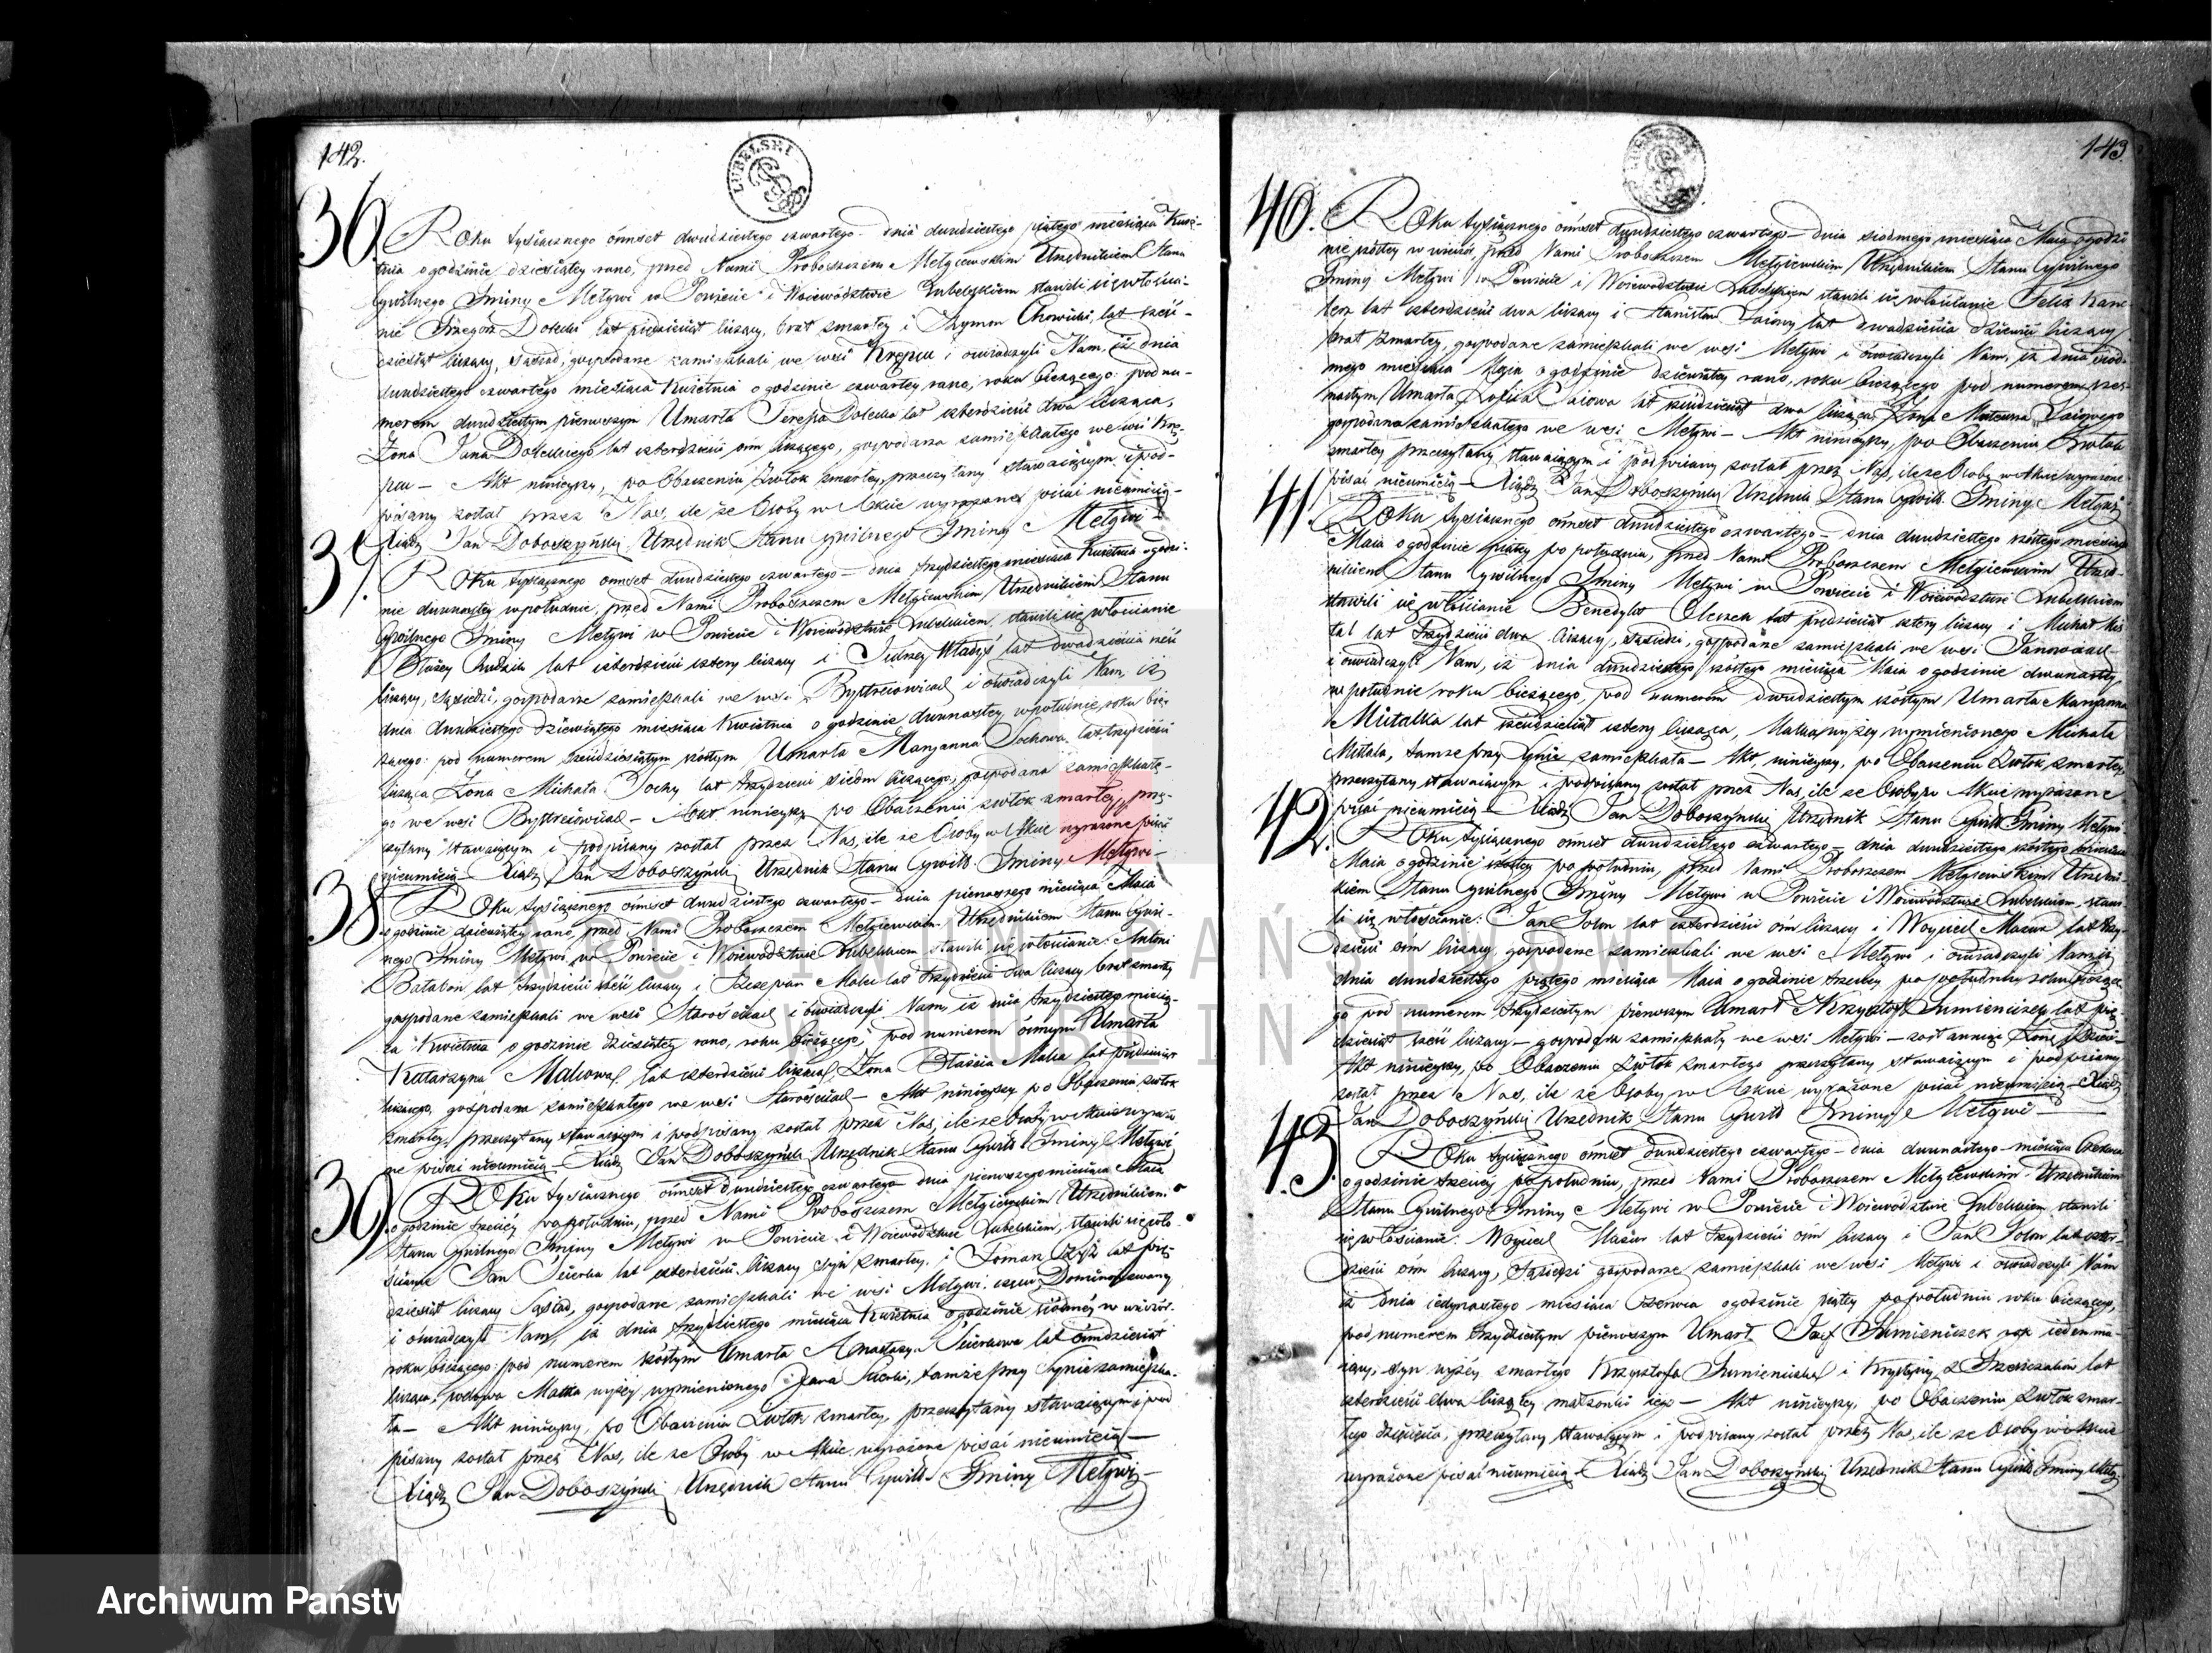 142.
LUBELSKI
36. Roku tysiącznego ośmset dwudziestego czwartego – dnia dwudziestego piątego miesiąca Kwie-
tnia o godzinie dziesiątey rano, przed Nami Proboszczem Mełgiewskim Urzędnikiem Stanu
Cywilnego Gminy Mełgwi w Powiecie i Woiewództwie Lubelskiem stawili się włościa-
nie Grzegorz Dołecki lat pięćdziesiąt liczący, brat zmarłey i Szymon lat sześć-
dziesiąt liczący, Sąsiad, gospodarze zamieszkali we wsi Krępcu i oświadczyli Nam, iż dnia
dwudziestego czwartego miesiąca Kwietnia o godzinie czwartey rano, roku bieżącego: pod nu-
merem dwudziestym pierwszym Umarła Teressa Dołecka lat czterdzieści dwa licząca,
Żona Jana Dołeckiego lat czterdzieści ośm liczącego, gospodarza zamieszkałego we wsi Krę-
pcu – Akt ninieyszy, po Obaczeniu Zwłok zmarłey, przeczytany stawaiącym i pod-
pisany został przez Nas, ile że Osoby w Akcie wyrażone pisać nieumieią –
Xiądz Jan Doboszyński Urzędnik Stanu Cywilnego Gminy Mełgwi –
37. Roku tysiącznego ośmset dwudziestego czwartego – dnia trzydziestego miesiąca Kwietnia o godzi-
nie dwunastey w południe, przed Nami Proboszczem Mełgiewskim Urzędnikiem Stanu
Cywilnego Gminy Mełgwi w Powiecie i Woiewództwie Lubelskiem, stawili się włościanie
Błażey lat czterdzieści cztery liczący i Jędrzey Władyś lat dwadzieścia sześć
liczący, Sąsiedzi, gospodarze zamieszkali we wsi Bystrzeiowicach i oświadczyli Nam, iż
dnia dwudziestego dziewiątego miesiąca Kwietnia o godzinie dwunastey w południe, roku bie-
żącego: pod numerem sześćdziesiątym szóstym Umarła Maryanna Sochowa lat trzydzieści
licząca Żona Michała Sochy lat trzydzieści siedm liczącego, gospodarza zamieszkałe-
go we wsi Bystrzeiowicach – Akt ninieyszy po Obaczeniu zwłok zmarłey, prze-
czytany stawaiącym i podpisany został przez Nas, ile że Osoby w Akcie wyrażone pisać
nieumieią – Xiądz Jan Doboszyński Urzędnik Stanu Cywil: Gminy Mełgwi –
38. Roku tysiącznego ośmset dwudziestego czwartego – dnia pierwszego miesiąca Maia
o godzinie dziewiątey rano, przed Nami Proboszczem Mełgiewskim Urzędnikiem Stanu Cywil-
nego Gminy Mełgwi w Powiecie i Woiewództwie Lubelskiem stawili się włościanie: Antoni
lat trzydzieści sześć liczący i Szczepan lat trzydzieści dwa liczący brat zmarłey
gospodarze zamieszkali we wsi Starościcach i oświadczyli Nam, iż dnia trzydziestego miesią-
ca Kwietnia o godzinie dziesiątey rano, roku bieżącego: pod numerem ósmym Umarła
Katarzyna Makowa lat czterdzieści licząca Żona lat pięćdziesiąt
liczącego, gospodarza zamieszkałego we wsi Starościcach – Akt ninieyszy po Obaczeniu zwłok
zmarłey, przeczytany stawaiącym i podpisany został przez Nas, ile że Osoby w Akcie wyrażo-
ne pisać nieumieią – Xiądz Jan Doboszyński Urzędnik Stanu Cywil: Gminy Mełgwi
39. Roku tysiącznego ośmset dwudziestego czwartego – dnia pierwszego miesiąca Maia
o godzinie trzeciey po południu, przed Nami Proboszczem Mełgiewskim Urzędnikiem
Stanu Cywilnego Gminy Mełgwi w Powiecie i Woiewództwie Lubelskiem, stawili się wło-
ścianie Jan lat czterdzieści liczący syn zmarłey i lat pięć-
dziesiąt liczący Sąsiad, gospodarze zamieszkali we wsi Mełgwi
i oświadczyli Nam, iż dnia trzydziestego miesiąca Kwietnia o godzinie siódmey w wieczór.
roku bieżącego: pod numerem szóstym Umarła lat ośmdziesiąt
licząca, wdowa Matka wyżey wymienionego Jana, tamże przy Synie zamieszka-
ła – Akt ninieyszy, po Obaczeniu Zwłok zmarłey, przeczytany stawaiącym i pod
pisany został przez Nas, ile że Osoby w Akcie wyrażone pisać nieumieią –
Xiądz Jan Doboszyński Urzędnik Stanu Cywill: Gminy Mełgwi –
143
40. Roku tysiącznego ośmset dwudziestego czwartego – dnia siódmego miesiąca Maia o godzi
nie szóstey w wieczór, przed Nami Proboszczem Mełgiewskim Urzędnikiem Stanu Cywilnego
Gminy Mełgwi w Powiecie i Woiewództwie Lubelskiem stawili się włościanie Felix
lat czterdzieści dwa liczący i Stanisław lat dwadzieścia liczący
brat zmarłey, gospodarze zamieszkali we wsi Mełgwi i oświadczyli Nam, iż dnia siód-
mego miesiąca Maja o godzinie dziewiątey rano, roku bieżącego pod numerem
Umarła Zofija lat dwa licząca, Żona
gospodarza zamieszkałego we wsi Mełgwi – Akt ninieyszy, po Obaczeniu Zwłok
zmarłey przeczytany stawaiącym i podpisany został przez Nas, ile że Osoby w Akcie wyrażone
pisać nieumieią – Xiądz Jan Doboszyński Urzędnik Stanu Cywill: Gminy Mełgwi
41. Roku tysiącznego ośmset dwudziestego czwartego – dnia dwudziestego szóstego miesiąca
Maia o godzinie piątey po południu, przed Nami Proboszczem Mełgiewskim Urzęd-
nikiem Stanu Cywilnego Gminy Mełgwi w Powiecie i Woiewództwie Lubelskiem
stawili się włościanie Benedykt Oleszek lat pięćdziesiąt cztery liczący i Michał
lat trzydzieści dwa liczący, sąsiedzi, gospodarze zamieszkali we wsi
i oświadczyli Nam, iż dnia dwudziestego szóstego miesiąca Maia o godzinie dwunastey
w południe roku bieżącego, pod numerem dwudziestym szóstym Umarła Maryanna
lat sześćdziesiąt cztery licząca, Matka wyżey wymienionego Michała
tamże przy Synie zamieszkała – Akt, ninieyszy, po Obaczeniu Zwłok zmarłey,
przeczytany stawaiącym i podpisany został przez Nas, ile że Osoby w Akcie wyrażone
pisać nieumieią – Xiądz Jan Doboszyński Urzędnik Stanu Cywill: Gminy Mełgwi
42. Roku tysiącznego ośmset dwudziestego czwartego – dnia dwudziestego szóstego miesiąca
Maia o godzinie szóstey po południu, przed Nami Proboszczem Mełgiewskim Urzędni-
kiem Stanu Cywilnego Gminy Mełgwi w Powiecie i Woiewództwie Lubelskiem, stawi-
li się włościanie: Jan lat czterdzieści ośm liczący i Woyciech Mazur lat trzy-
dzieści ośm liczący, gospodarze zamieszkali we wsi Mełgwi i oświadczyli Nam, iż
dnia dwudziestego piątego miesiąca Maia o godzinie trzeciey po południu roku bieżące-
go pod numerem trzydziestym pierwszym Umarł Krzysztof lat pięć-
dziesiąt sześć liczący – gospodarz zamieszkały we wsi Mełgwi –
Akt ninieyszy, po Obaczeniu Zwłok zmarłego przeczytany stawaiącym i podpisany
został przez Nas, ile że Osoby w Akcie wyrażone pisać nieumieią – Xiądz
Jan Doboszyński Urzędnik Stanu Cywill: Gminy Mełgwi –
43. Roku tysiącznego ośmset dwudziestego czwartego – dnia dwunastego miesiąca Czerwca
o godzinie trzeciey po południu, przed Nami Proboszczem Mełgiewskim Urzędnikiem
Stanu Cywilnego Gminy Mełgwi w Powiecie i Woiewództwie Lubelskiem, stawili
się włościanie: Woyciech Mazur lat trzydzieści ośm liczący i Jan lat czter-
dzieści ośm liczący, Sąsiedzi gospodarze zamieszkali we wsi Mełgwi i oświadczyli Nam
iż dnia iedynastego miesiąca Czerwca o godzinie piątey po południu roku bieżącego,
pod numerem trzydziestym pierwszym Umarł Józef rok ieden ma-
iący, syn wyżey zmarłego Krzysztofa i Krystyny lat
czterdzieści dwa liczącey małżonki iego – Akt ninieyszy, po Obaczeniu Zwłok zmar-
łego dziecięcia, przeczytany stawaiącym i podpisany został przez Nas, ile że Osoby w Akcie
wyrażone pisać nieumieią – Xiądz Jan Doboszyński Urzędnik Stanu Cywill: Gminy Mełgwi
W LUBLINIE